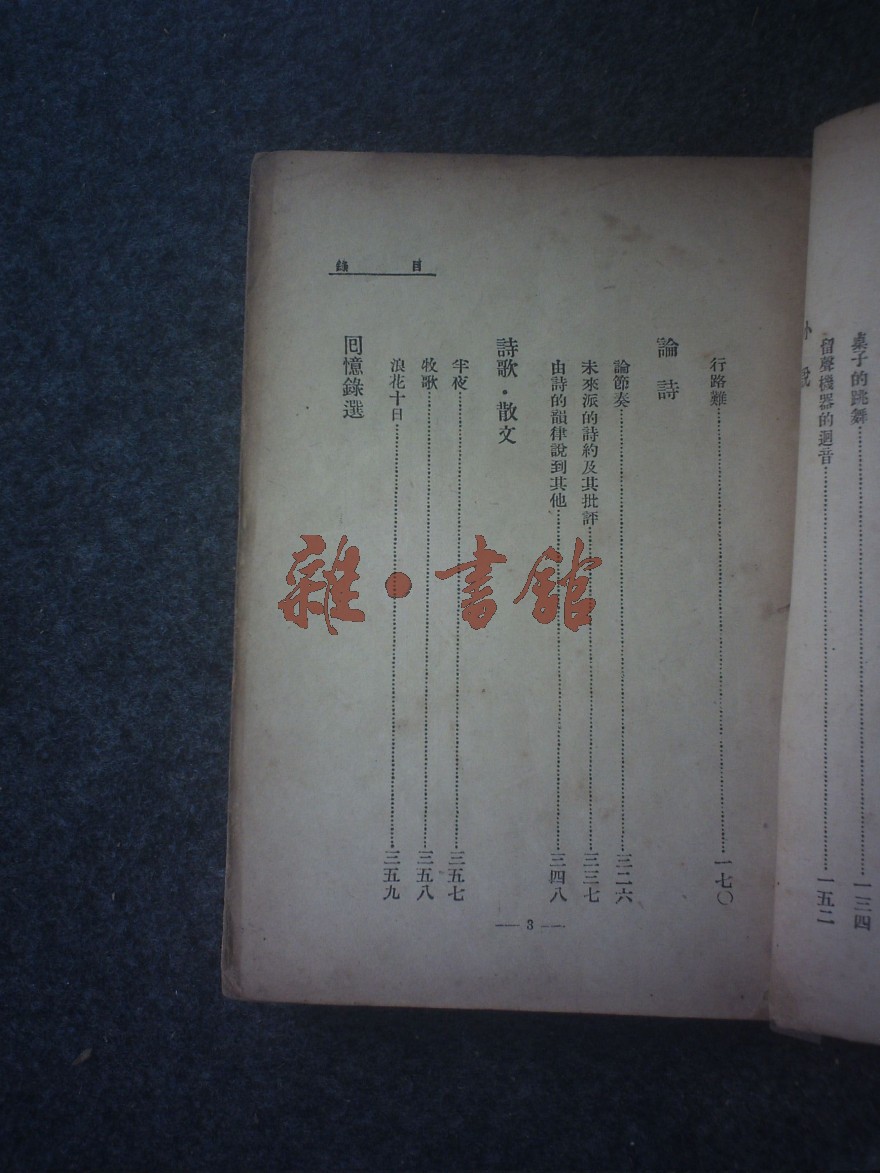 桌子的跳舞……一三四
留聲機器的迴音……一五二
小說
目錄
行路難……一七〇
論詩
論節奏……三二六
未來派的詩約及其批評……三三七
由詩的韻律說到其他……三四八
詩歌·散文
半夜……三五七
牧歌……三五八
浪花十日……三五九
回憶錄選
— 3 —
雜·書館